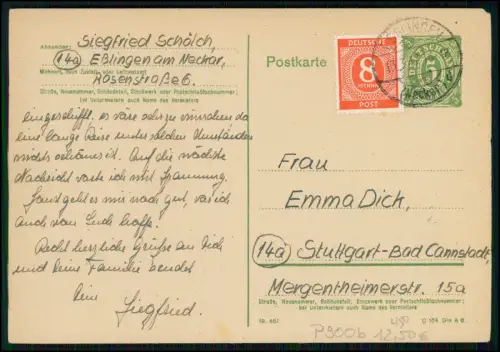 Absender: Siegfried Schölch,
(14a) Eßlingen am Neckar,
Wohnort, auch Zustell- oder Leitpostamt
Rosenstraße 6.
Straße, Hausnummer, Gebäudeteil, Stockwerk oder Postschließfachnummer;
bei Untermietern auch Name des Vermieters
eingeschifft. Es wäre sehr zu wünschen da
eine lange Reise unter solchen Umständen
nichts schönes ist. Auf die nächste
Nachricht warte ich mit Spannung.
Sonst geht es mir noch gut, was ich
auch von Euch hoffe.
Recht herzliche Grüße an Dich
und Deine Familie sendet
Dein
Siegfried.
Postkarte
DEUTSCHE
8
PFENNIG
POST
DEUTSCHE
5
Frau
Emma Dick,
(14a) Stuttgart-Bad Cannstadt,
Mergentheimerstr. 15a
Straße, Hausnummer, Gebäudeteil, Stockwerk oder Postschließfachnummer;
bei Untermietern auch Name des Vermieters
P900b 12,50€